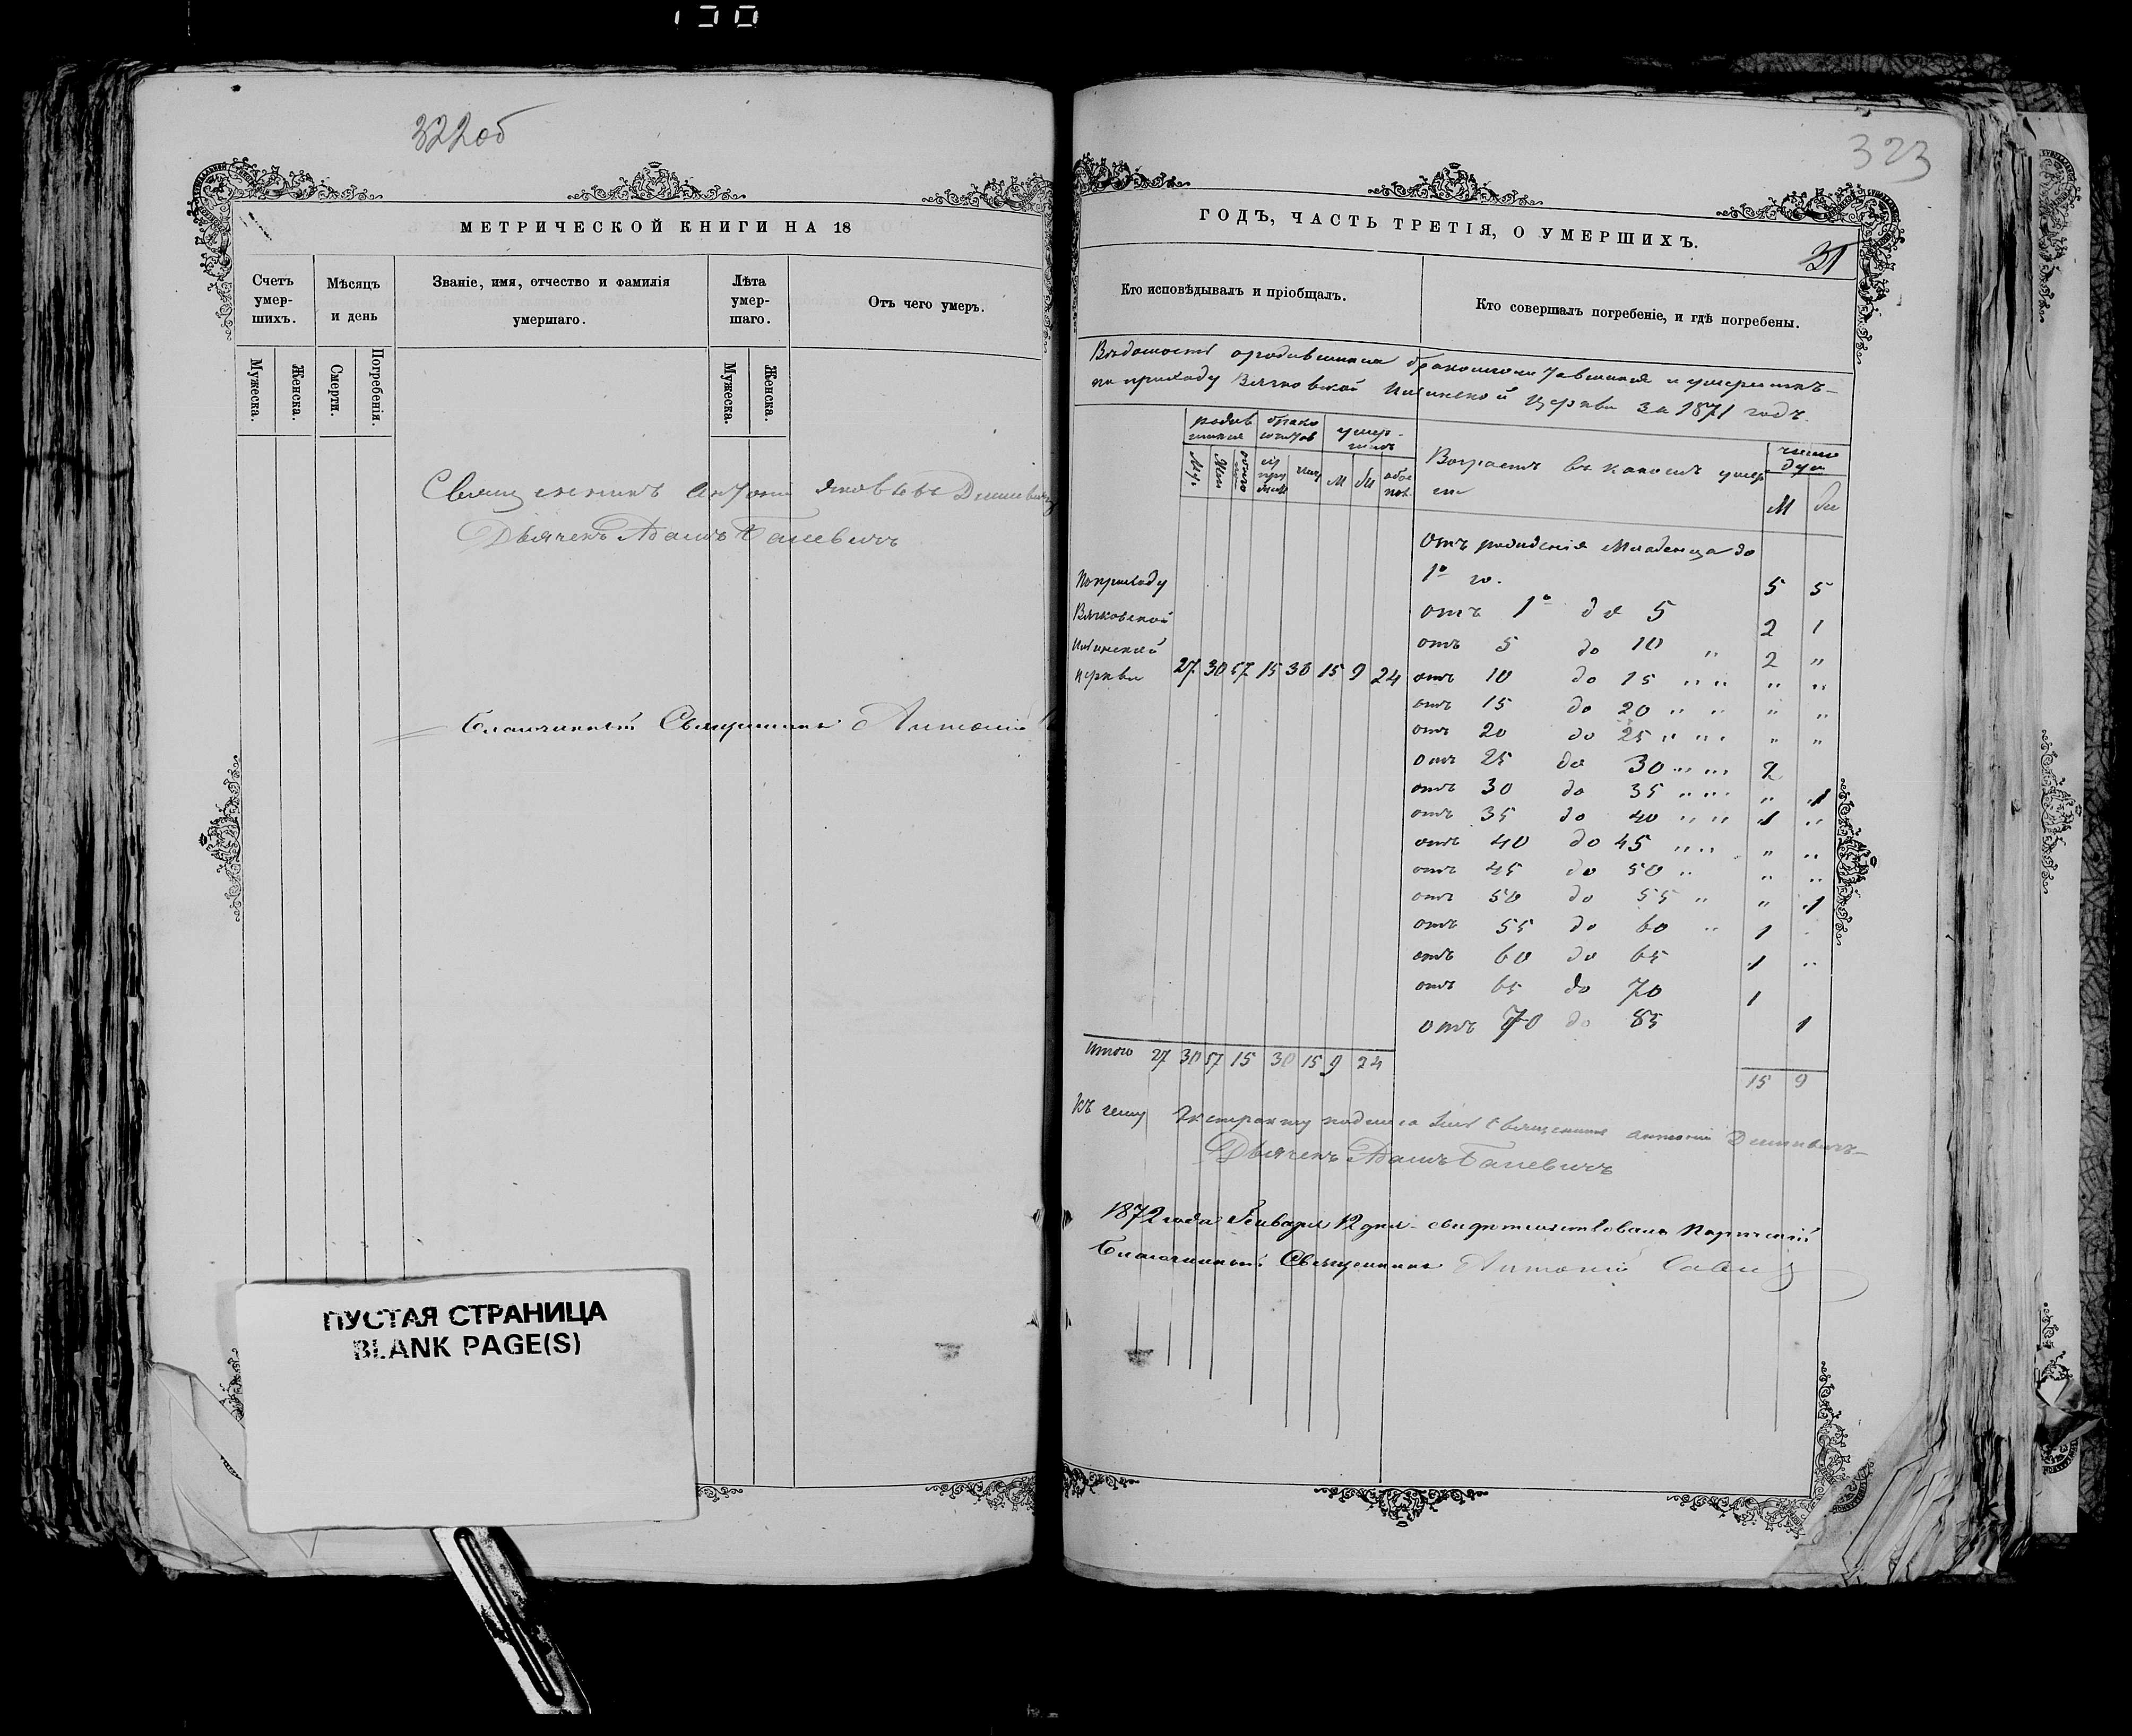 322об
МЕТРИЧЕСКОЙ КНИГИ НА 18
Счетъ умер-шихъ.
Мѣсяцъ и день
Званіе, имя, отчество и фамилія умершаго.
Лѣта умер-шаго.
Отъ чего умеръ.
Мужеска.
Женска.
Смерти.
Погребенія.
Мужеска.
Женска.
Священникъ Антоній Яковлевъ
Дьячекъ Адамъ
Благочинный Священникъ Антоній
ПУСТАЯ СТРАНИЦА
BLANK PAGE(S)
323
ГОДЪ, ЧАСТЬ ТРЕТІЯ, О УМЕРШИХЪ.
31
Кто исповѣдывалъ и пріобщалъ.
Кто совершалъ погребеніе, и гдѣ погребены.
Вѣдомость о родившихся бракосочетавшихся и умершихъ
по приходу Церкви за 1871 годъ.
М Ж обое пол.
Возрастъ въ какомъ умер
число душъ
М
Отъ рожденія Младенца до
1го го. 5 5
отъ 1го до 5 2 1
отъ 5 до 10 " 2 "
По приходу
Церкви 27 30 57 15 30 15 9 24
отъ 10 до 15 " " " "
отъ 15 до 20 " " " "
отъ 20 до 25 " " " "
отъ 25 до 30 " " 2
отъ 30 до 35 " " " 1
отъ 35 до 40 " " 1 "
отъ 40 до 45 " " " "
отъ 45 до 50 " " "
отъ 50 до 55 " " 1
отъ 55 до 60 " 1
отъ 60 до 65 1 "
отъ 65 до 70 1
отъ 70 до 85 1
Итого 27 30 57 15 30 15 9 24
15 9
Къ сему Священникъ Антоній
Дьячекъ Адамъ
1872 года Января 12 дня свидѣтельствовалъ
Благочинный Священникъ Антоній